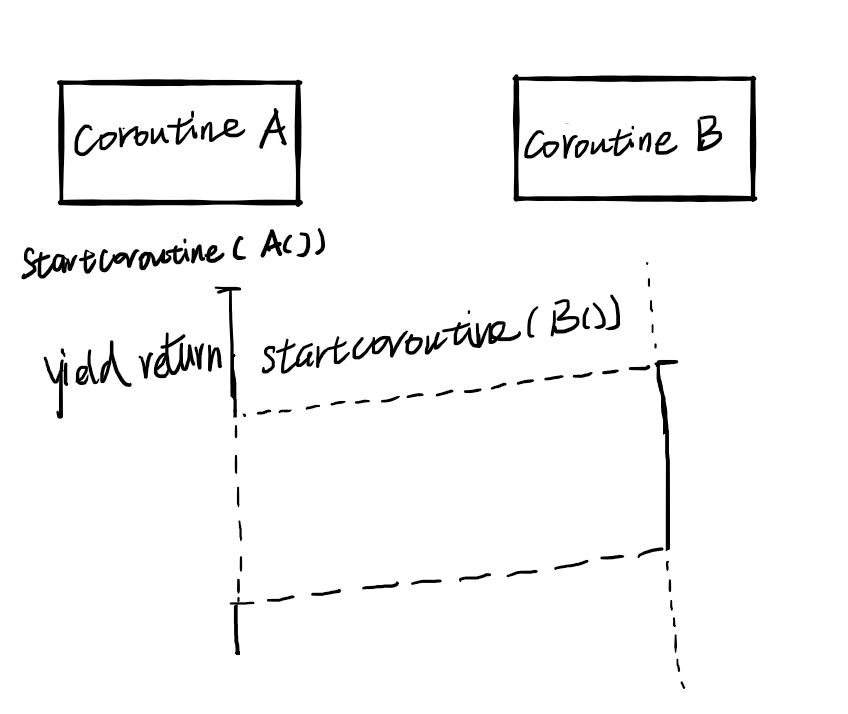 Coroutine A
Coroutine B
Startcoroutine ( A())
yield return startcoroutine ( B())